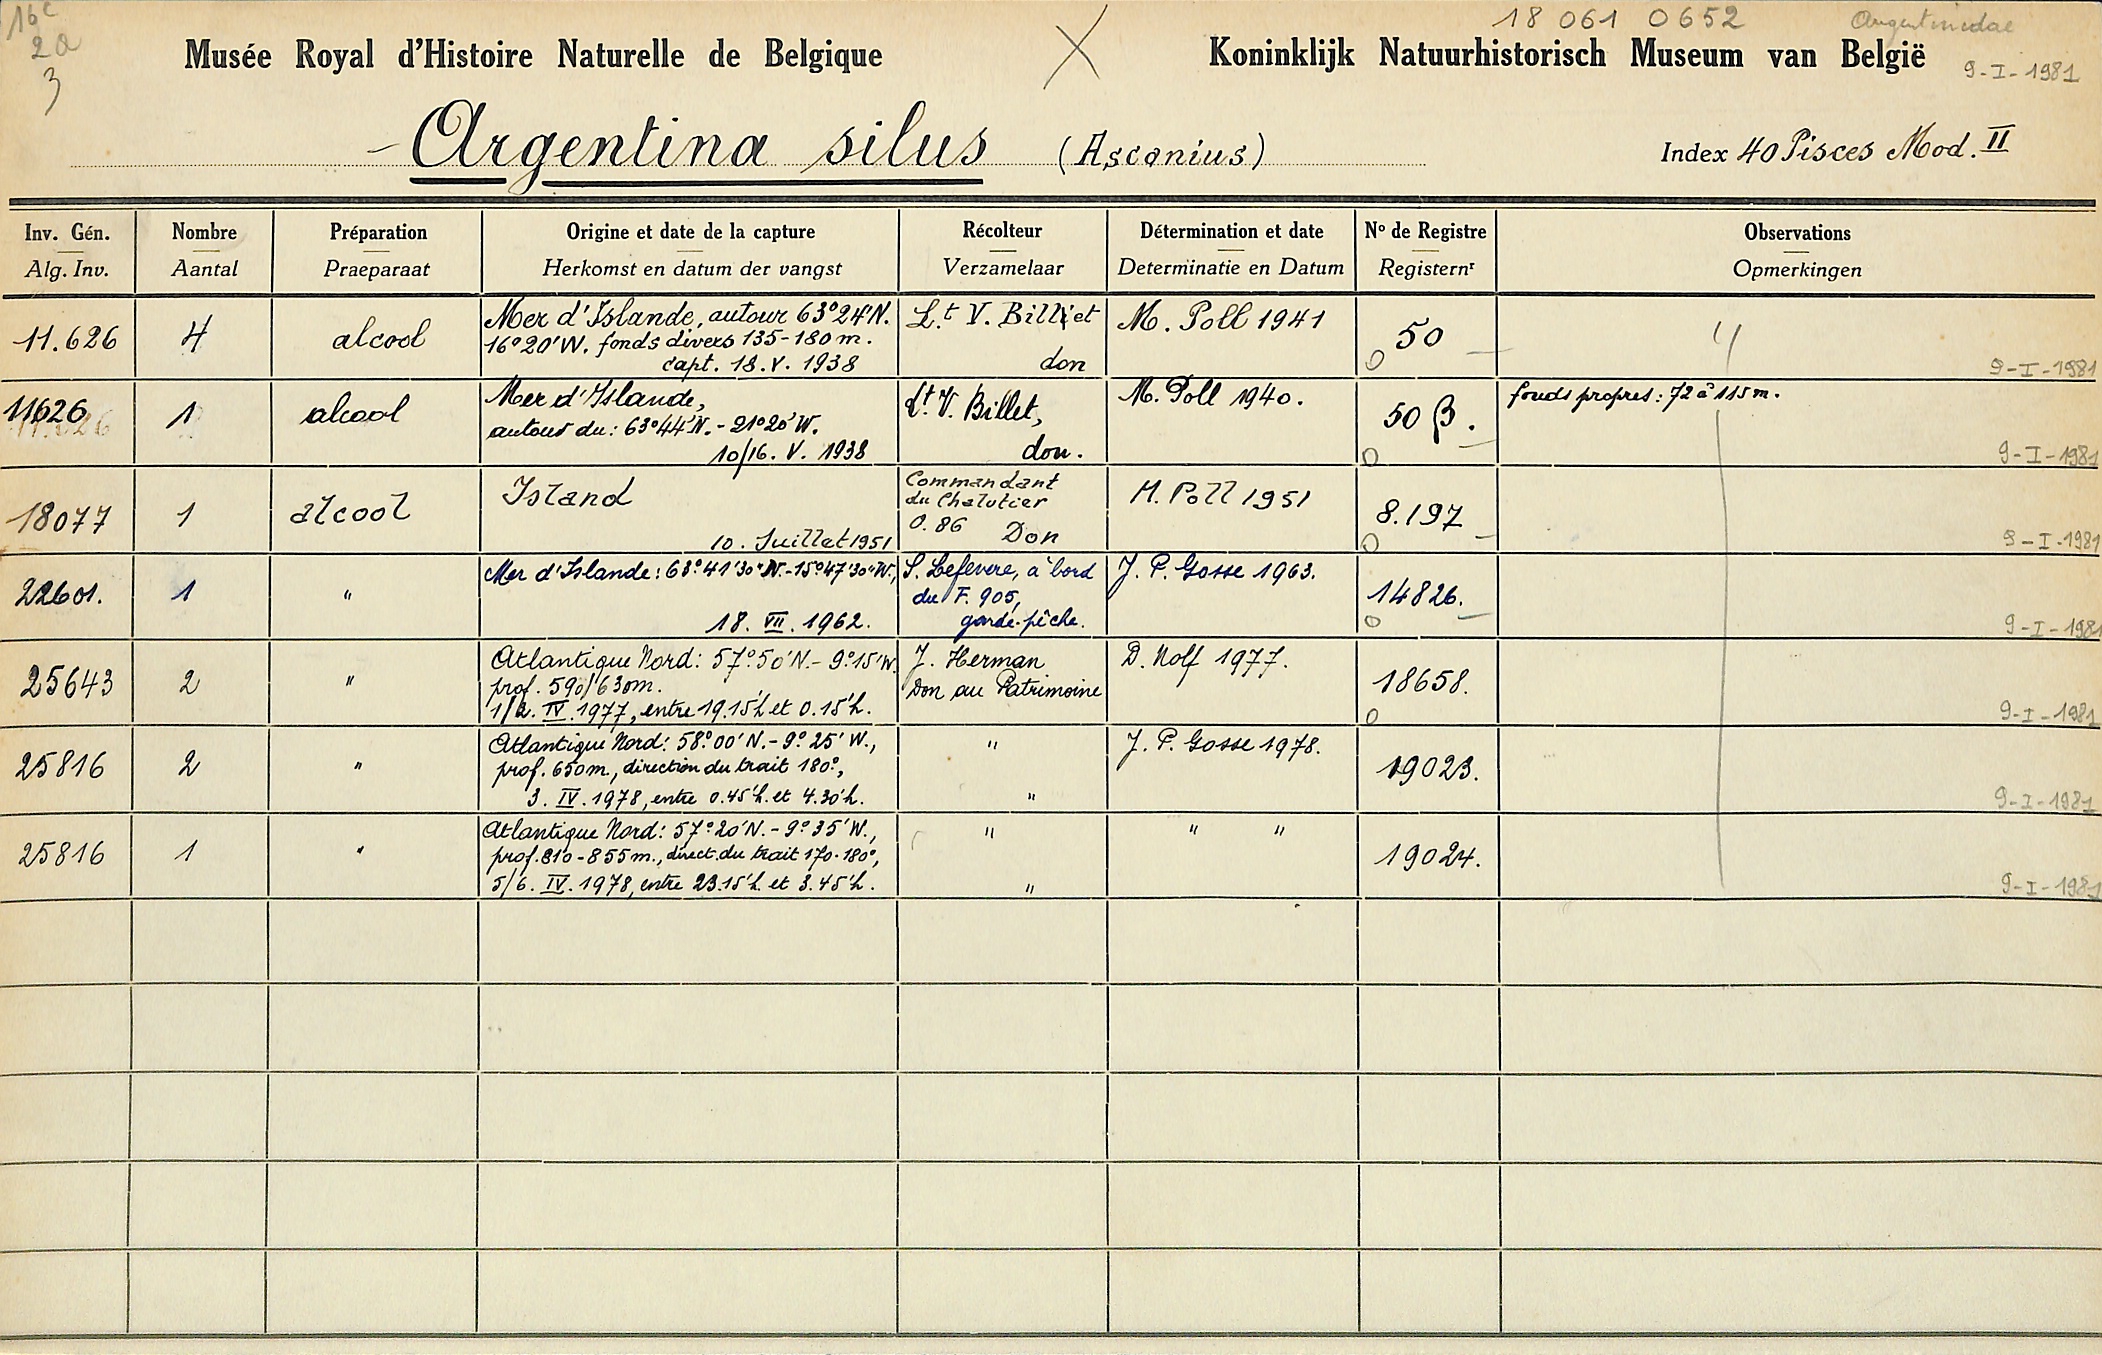 16c
2a
3
18 061 0652
Argentinidae
Musée Royal d'Histoire Naturelle de Belgique
Koninklijk Natuurhistorisch Museum van België
9-I-1981
Argentina silus (Ascanius)
Index 40 Pisces Mod. II
Inv. Gén. Nombre Préparation Origine et date de la capture Récolteur Détermination et date No de Registre Observations
Alg. Inv. Aantal Praeparaat Herkomst en datum der vangst Verzamelaar Determinatie en Datum Registernr Opmerkingen
11.626 4 alcool
Mer d'Islande, autour 63°24'N.
16°20'W. fonds divers 135-180 m.
capt. 18.V. 1938
L.t V. Billiet
don
M. Poll 1941
50
9-I-1981
11626 1 alcool
Mer d'Islande,
autour du: 63°44'N. - 21°20'W.
10/16. V. 1938
Lt. V. Billet,
don.
M. Poll 1940.
50 β.
fonds propres: 72 à 115 m.
9-I-1981
18077 1 alcool
Island
10. Juillet 1951
Commandant
du Chalutier
O.86 Don
M. Poll 1951
8.197
9-I-1981
22601. 1 "
Mer d'Islande: 63°41'30"N.-15°47'30"W.,
18. VII. 1962.
S. Lefevere, à bord
du F. 905,
garde-pêche.
J. P. Gosse 1963.
14826.
9-I-1981
25643 2 "
Atlantique Nord: 57°50'N.- 9°15'W.
prof. 590/630m.
1/2. IV. 1977, entre 19.15'h et 0.15'h.
J. Herman
Don au Patrimoine
D. Nolf 1977.
18658.
9-I-1981
25816 2 "
Atlantique Nord: 58°00'N.-9°25'W.,
prof. 650m, direction du trait 180°,
3. IV. 1978, entre 0.45'h. et 4.30'h.
"
"
J. P. Gosse 1978.
19023.
9-I-1981
25816 1 "
Atlantique Nord: 57°20'N.-9°35'W.,
prof. 810-855m., direct. du trait 170-180°,
5/6. IV. 1978, entre 23.15'h. et 3.45'h.
"
"
" "
19024.
9-I-1981